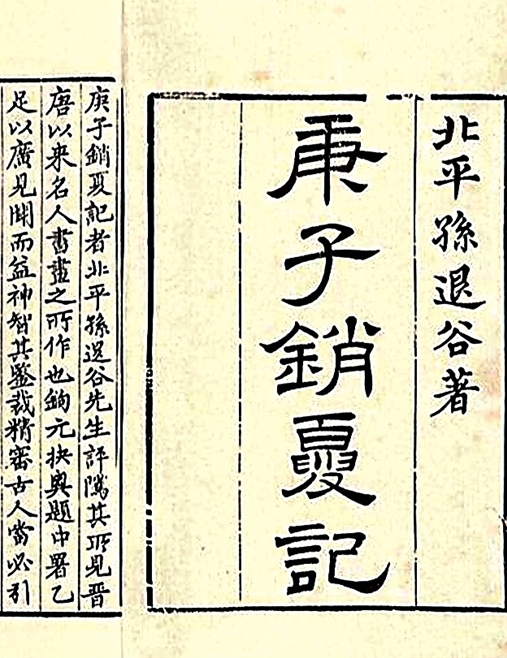 北平孫退谷著
庚子銷夏記
庚子銷夏記者北平孫退谷先生評隲其所見晋
唐以來名人書畫之所作也鉤元抉奥題中署乙
足以廣見聞而益神智其鑒裁精審古人當必引